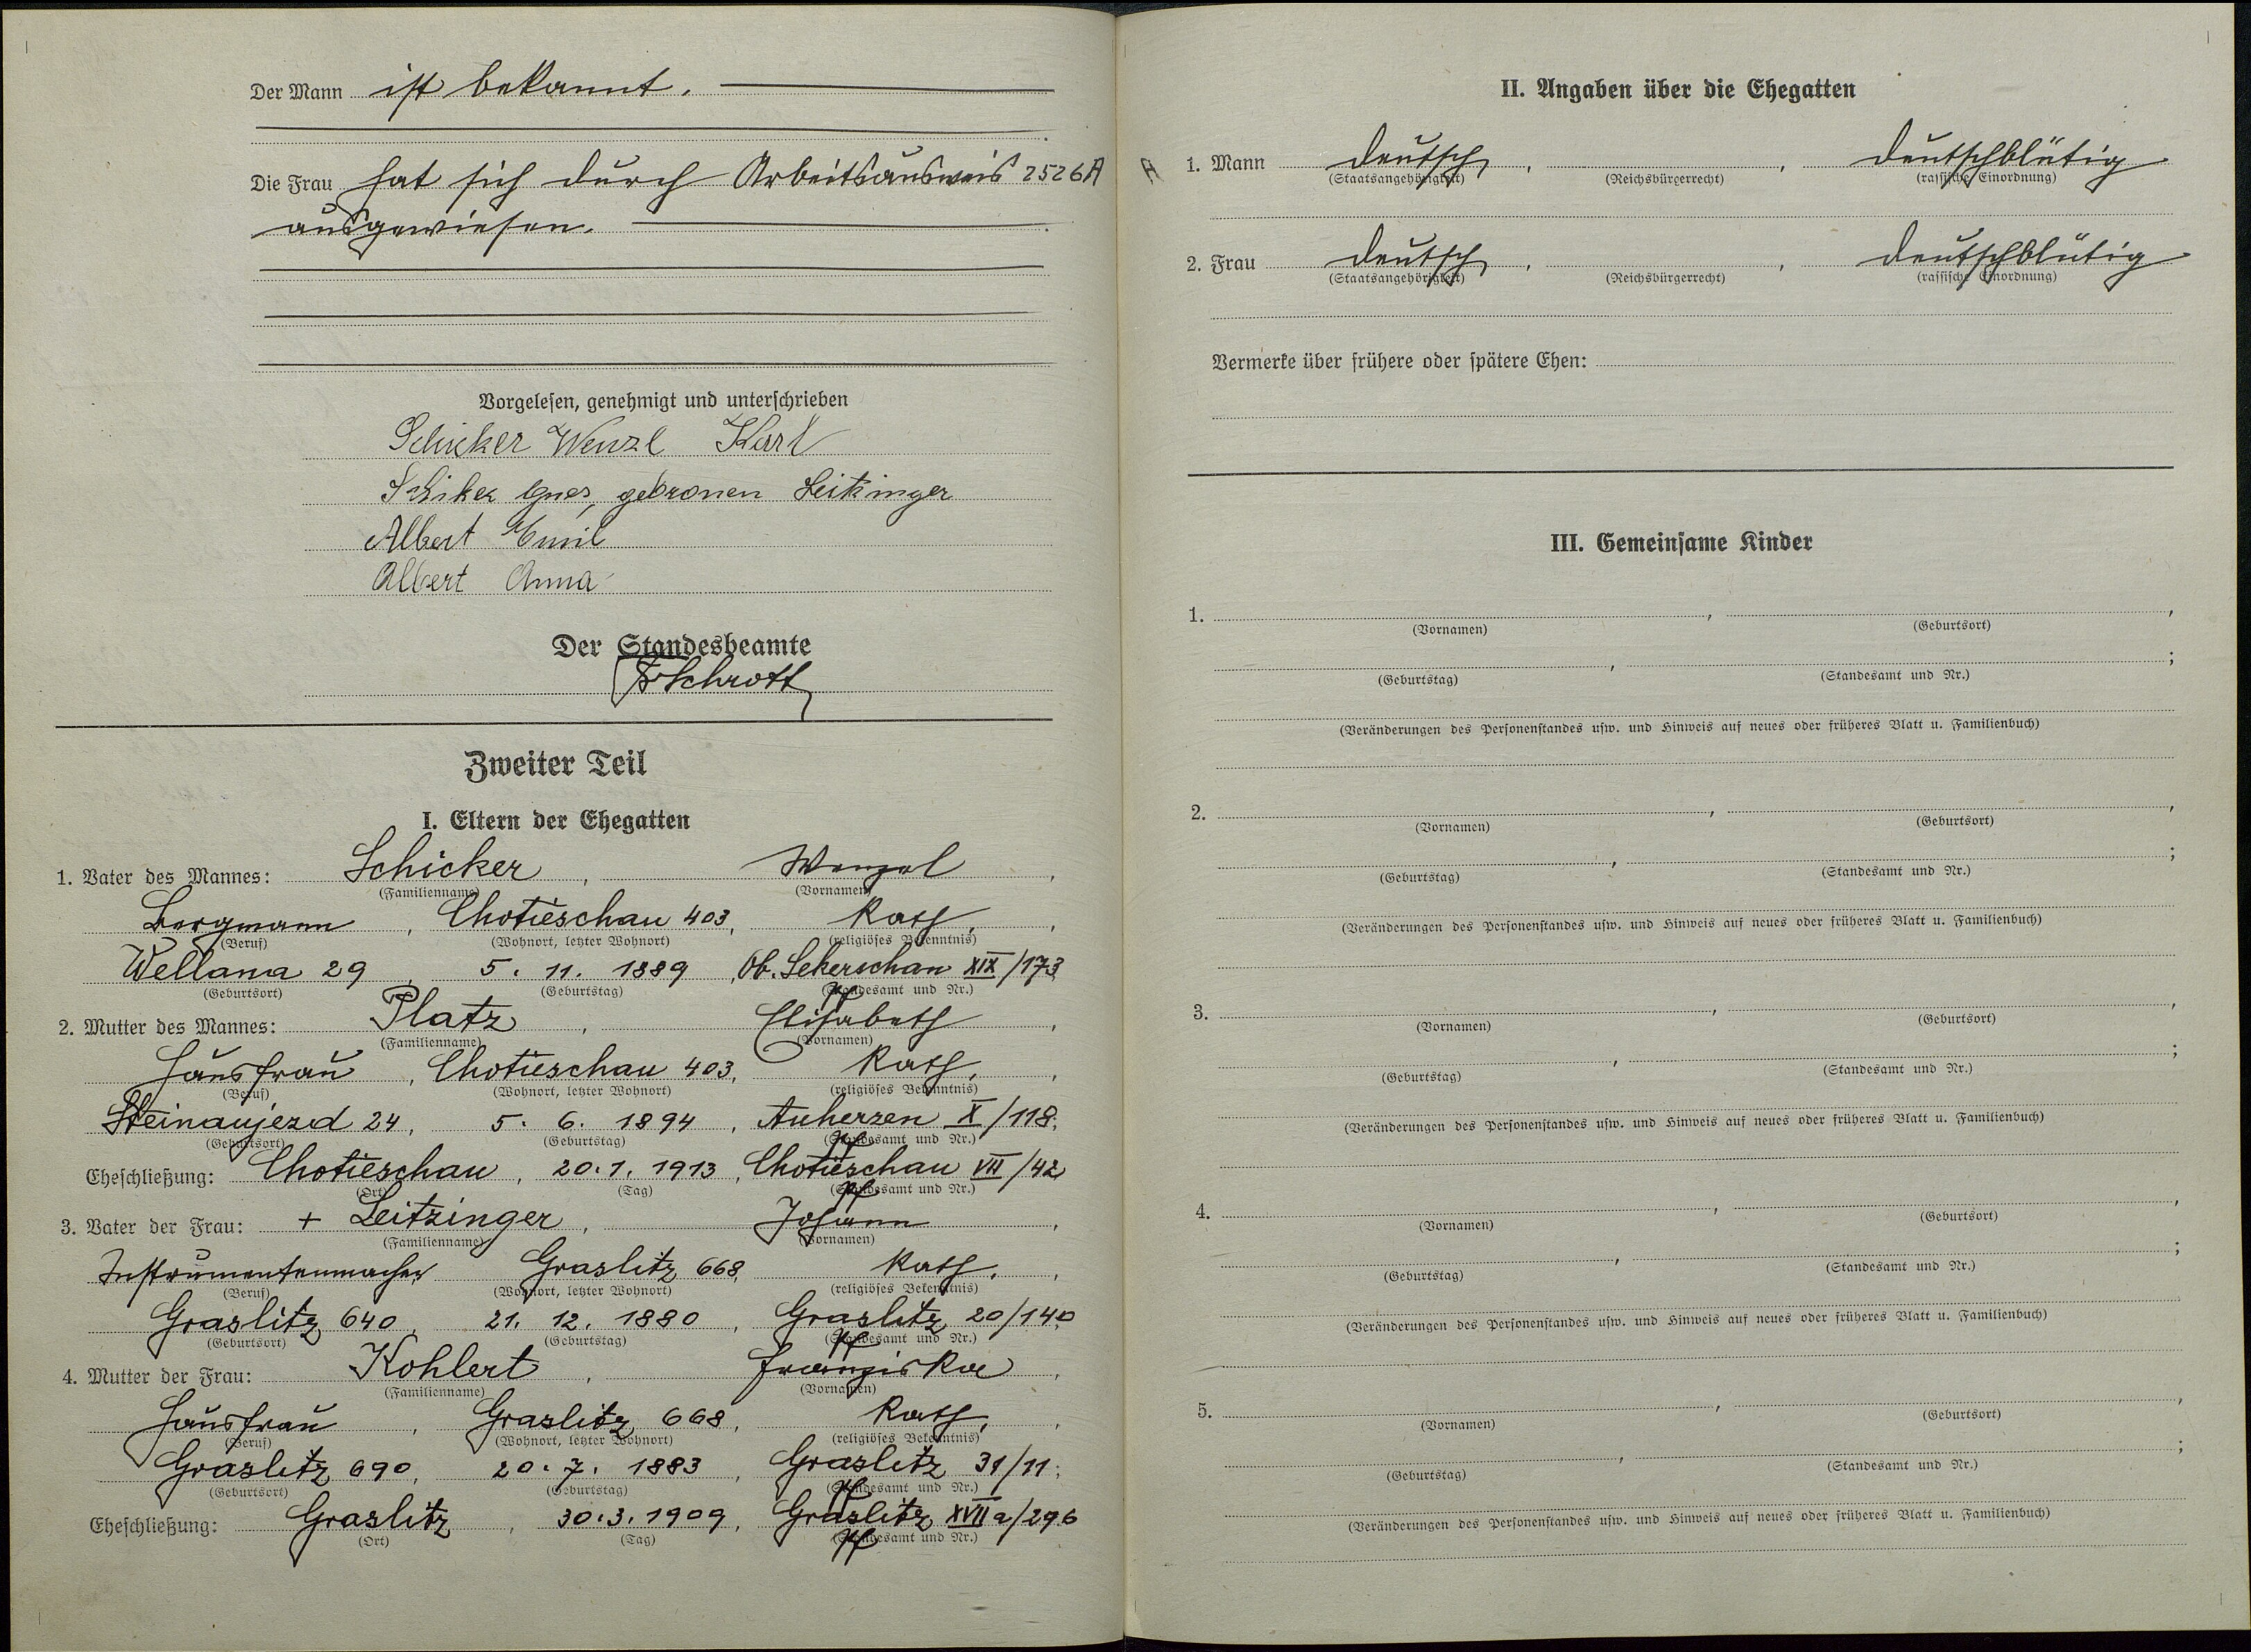 Der Mann ist bekannt.
Die Frau hat sich durch Arbeitsausweis 2526 A
ausgewiesen.
Vorgelesen, genehmigt und unterschrieben
Schicker Wenzl Karl
Schiker Agnes, gebronen Leitzinger
Albert Emil
Albert Anna
Der Standesbeamte
Schrott
Zweiter Teil
I. Eltern der Ehegatten
1. Vater des Mannes: Schicker, Wenzel,
(Familienname) (Vornamen)
Bergmann, Chotieschau 403, kath.,
(Beruf) (Wohnort, letzter Wohnort) (religiöses Bekenntnis)
Wellana 29, 5. 11. 1889, Ob. Sekerschan XIX/173
(Geburtsort) (Geburtstag) (Standesamt und Nr.)
2. Mutter des Mannes: Platz, Elisabeth,
(Familienname) (Vornamen)
Hausfrau, Chotieschau 403, kath.,
(Beruf) (Wohnort, letzter Wohnort) (religiöses Bekenntnis)
Steinaujezd 24, 5. 6. 1894, Auherzen X/118;
(Geburtsort) (Geburtstag) (Standesamt und Nr.)
Eheschließung: Chotieschau, 20.1.1913, Chotieschau VII/42
(Ort) (Tag) (Standesamt und Nr.)
3. Vater der Frau: + Leitzinger, Johann,
(Familienname) (Vornamen)
Instrumentenmacher Graslitz 668, kath.,
(Beruf) (Wohnort, letzter Wohnort) (religiöses Bekenntnis)
Graslitz 640, 21. 12. 1880, Graslitz 20/140
(Geburtsort) (Geburtstag) (Standesamt und Nr.)
4. Mutter der Frau: Kohlert, Franziska,
(Familienname) (Vornamen)
Hausfrau, Graslitz 668, kath.,
(Beruf) (Wohnort, letzter Wohnort) (religiöses Bekenntnis)
Graslitz 690, 20. 7. 1883, Graslitz 31/11;
(Geburtsort) (Geburtstag) (Standesamt und Nr.)
Eheschließung: Graslitz, 30.3.1909, Graslitz XVII a/296
(Ort) (Tag) (Standesamt und Nr.)
II. Angaben über die Ehegatten
A 1. Mann deutsch, , deutschblütig
(Staatsangehörigkeit) (Reichsbürgerrecht) (rassische Einordnung)
2. Frau deutsch, , deutschblütig
(Staatsangehörigkeit) (Reichsbürgerrecht) (rassische Einordnung)
Vermerke über frühere oder spätere Ehen:
III. Gemeinsame Kinder
1. , ,
(Vornamen) (Geburtsort)
, ;
(Geburtstag) (Standesamt und Nr.)
(Veränderungen des Personenstandes usw. und Hinweis auf neues oder früheres Blatt u. Familienbuch)
2. , ,
(Vornamen) (Geburtsort)
, ;
(Geburtstag) (Standesamt und Nr.)
(Veränderungen des Personenstandes usw. und Hinweis auf neues oder früheres Blatt u. Familienbuch)
3. , ,
(Vornamen) (Geburtsort)
, ;
(Geburtstag) (Standesamt und Nr.)
(Veränderungen des Personenstandes usw. und Hinweis auf neues oder früheres Blatt u. Familienbuch)
4. , ,
(Vornamen) (Geburtsort)
, ;
(Geburtstag) (Standesamt und Nr.)
(Veränderungen des Personenstandes usw. und Hinweis auf neues oder früheres Blatt u. Familienbuch)
5. , ,
(Vornamen) (Geburtsort)
, ;
(Geburtstag) (Standesamt und Nr.)
(Veränderungen des Personenstandes usw. und Hinweis auf neues oder früheres Blatt u. Familienbuch)